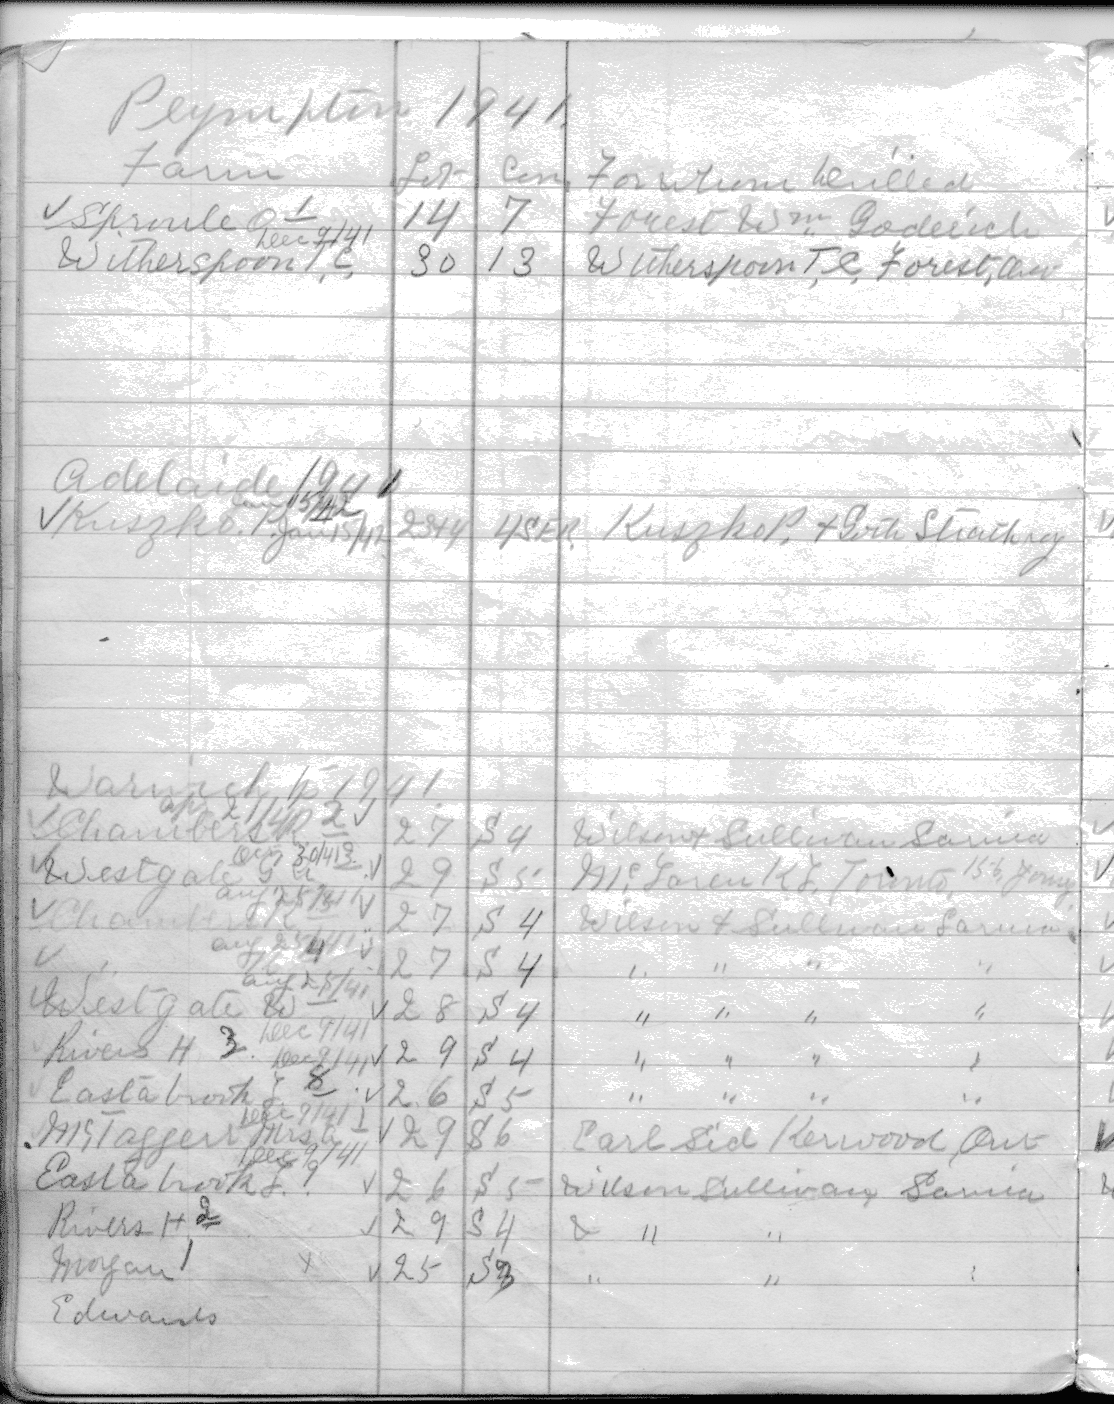 Plympton 1941.
Farm Lot Con. For whom Drilled
✓ Sproule O 1 14 7 Forest Wm. Goderich
Dec 9/41
Witherspoon T, C, 30 13 Witherspoon T, C, Forest, Ont
Adelaide 1941
15/42
✓ Kuszko. P. Jan 15/42 23+4 4 S.E.R. Kuszko P. + Goth Strathroy
Warwick Tp 1941.
Apr 21/42
✓ Chambers R 2 ✓ 27 S 4 Wilson + Sullivan Sarnia
30/42
✓ Westgate ✓ 29 S 5 Mc Laren K J, Toronto, 156, Yong
Aug 25/41
✓ Chambers R ✓ 27 S 4 Wilson + Sullivan Sarnia
Aug 25/41
✓ " 4 ✓ 27 S 4 " " " "
Aug 25/41
✓ Westgate W 1 ✓ 28 S 4 " " " "
Dec 9/41
Rivers H 3. ✓ 29 S 4 " " " "
Dec 9/41
Eastabrook J. 8 ✓ 26 S 5 " " " "
Dec 9/41
McTaggert Mrs 1 ✓ 29 S 6 Earl Sid Kerwood, Ont
Dec 9/41
Eastabrook J. 9 ✓ 26 S 5 Wilson Sullivan, Sarnia
Rivers H, 2 ✓ 29 S 4 & " "
Morgan 1 x ✓ 25 S 3 " " "
Edwards